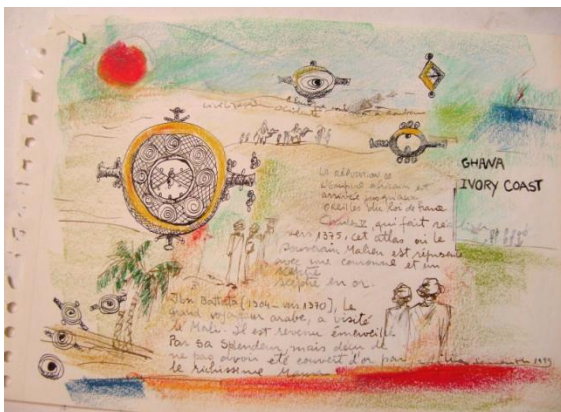 GHANA
IVORY COAST
La réputation de
l'empire africain est
arrivée jusqu'aux
oreilles du roi de france
qui fait
vers 1375, cet atlas où le
souverain Malien est représenté
avec une couronne et un
sceptre
sceptre en or.
Ibn Battuta (1304 - 1370), Le
grand voyageur arabe, a visité
le Mali. Il est revenu émerveillé
Par sa splendeur, mais déçu de
ne pas avoir été couvert d'or par
le richissime